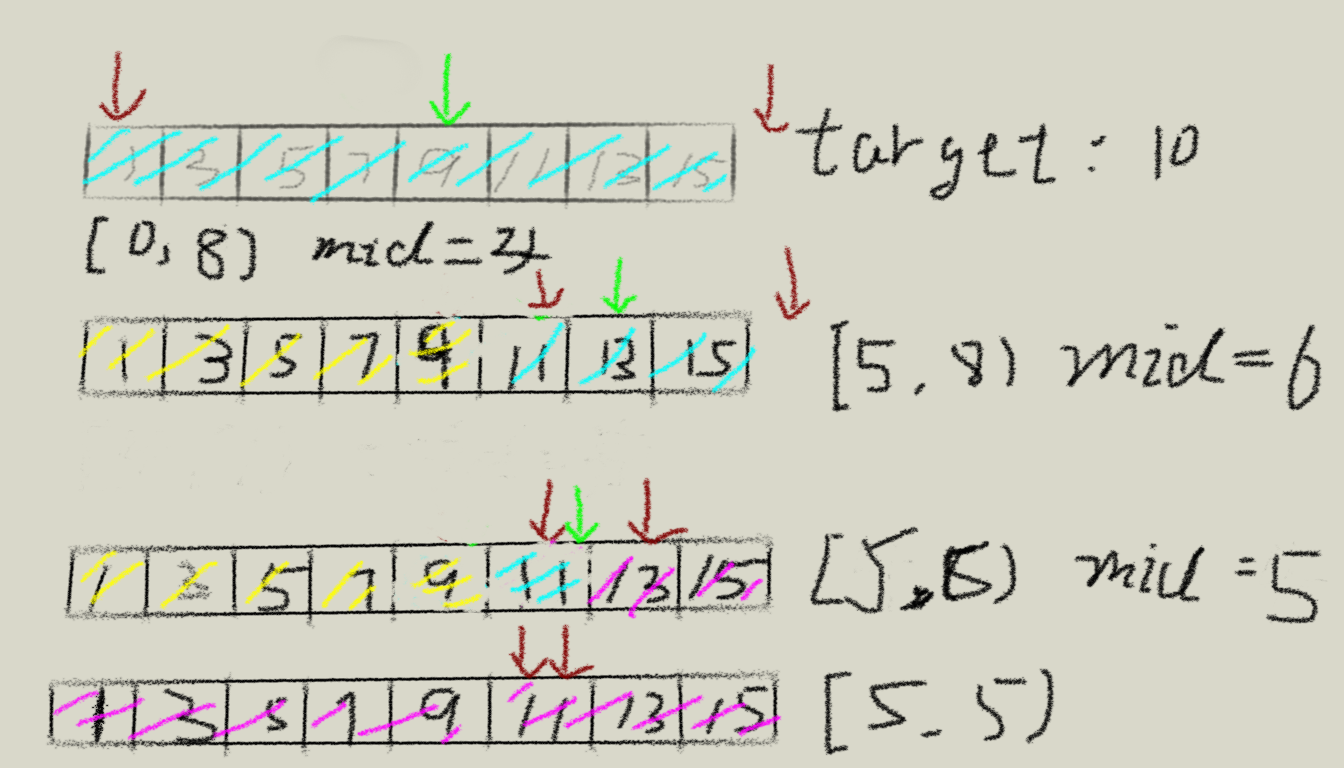 1 3 5 7 9 11 13 15 target: 10
[0, 8) mid=4
1 3 5 7 9 11 13 15 [5, 8) mid=6
1 3 5 7 9 11 13 15 [5,6) mid=5
1 3 5 7 9 11 13 15 [5 5)